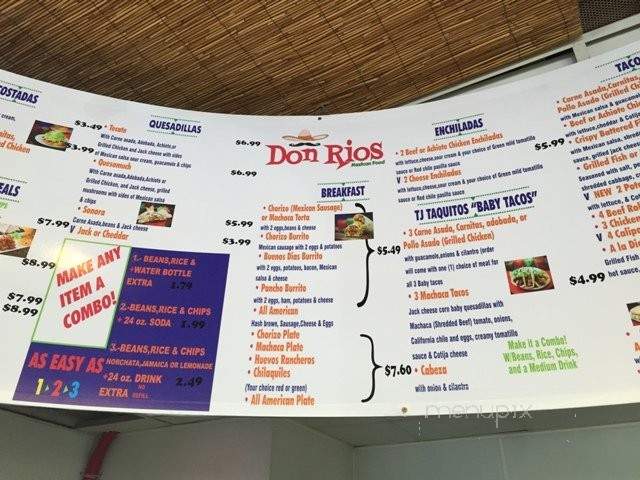 OSTADAS
cream.
Chicken
EALS
$7.99
$8.99
$7.99
$8.99
QUESADILLAS
$3.49 • Tecate
With Carne asada, Adobada, Achiote, or
Grilled Chicken and Jack cheese with sides
$3.99 Mexican salsa sour cream, guacamole & chips
• Quesomuch
With Carne asada, Adobada, Achiote or
Grilled Chicken, and Jack cheese, grilled
mushrooms with sides of Mexican salsa
& chips
• Sonora
Carne Asada, beans & Jack cheese
V Jack or Cheddar
MAKE ANY
ITEM A
COMBO!
AS EASY AS
1 2 3
1.- BEANS, RICE &
+WATER BOTTLE
EXTRA 1.79
2.-BEANS, RICE & CHIPS
+ 24 oz. SODA 1.99
3.-BEANS, RICE & CHIPS
HORCHATA, JAMAICA OR LEMONADE
+24 oz. DRINK 2.49
EXTRA NO REFILL
$6.99
$6.99
$5.99
$3.99
Don Rios
Mexican Food
BREAKFAST
• Chorizo (Mexican Sausage)
or Machaca Torta
with 2 eggs, beans & cheese
• Chorizo Burrito
Mexican sausage with 2 eggs & potatoes
• Buenos Dias Burrito
with 2 eggs, potatoes, bacon, Mexican
salsa & cheese
• Pancho Burrito
with 2 eggs, ham, potatoes & cheese
• All American
Hash brown, Sausage, Cheese & Eggs
$5.49
• Chorizo Plate
• Machaca Plate
• Huevos Rancheros
• Chilaquiles
(Your choice red or green)
• All American Plate
$7.60
ENCHILADAS
• 2 Beef or Achiote Chicken Enchiladas
with lettuce, cheese, sour cream & your choice of Green mild tomatillo
sauce or Red chile pasilla sauce
V 2 Cheese Enchiladas
with lettuce, cheese, sour cream & your choice of Green mild tomatillo
sauce or Red chile pasilla sauce
TJ TAQUITOS "BABY TACOS"
• 3 Carne Asada, Carnitas, adobada, or
Pollo Asada (Grilled Chicken)
with guacamole, onions & cilantro (order
will come with one (1) choice of meat for
all 3 Baby tacos
• 3 Machaca Tacos
Jack cheese corn baby quesadillas with
Machaca (Shredded Beef) tomato, onions,
California chile and eggs, creamy tomatillo
sauce & Cotija cheese
• Cabeza
with onion & cilantro
Make it a Combo!
W/Beans, Rice, Chips,
and a Medium Drink
$5.99
$4.99
TACO
• Carne Asada, Carnitas,
Pollo Asada (Grilled
with Mexican salsa &
• Beef or Achiote
with lettuce, cheddar &
• Crispy Battered
with Mexican salsa,
sauce, grilled jack
• Grilled Fish
Seasoned fish with
V NEW 2
with lettuce, &
• 4 Beef
• 3 Chicken
V 4
• A la
Grilled Fish
hot sauce
menupix